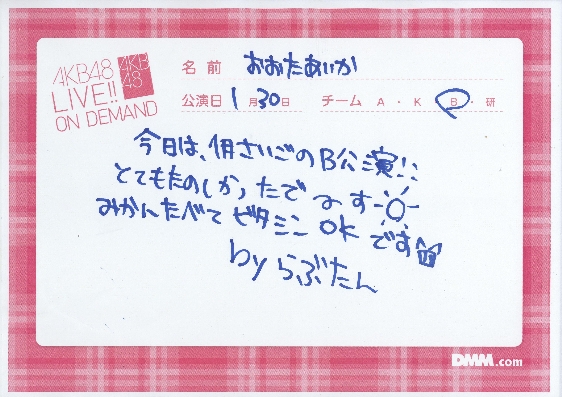 AKB48
LIVE!!
ON DEMAND
AKB
48
名前 おおたあいか
公演日 1月30日 チーム A・K・B・研
今日は、1月さいごのB公演!!
とてもたのしかったでーす
みかんたべてビタミンOKです
by らぶたん
DMM.com